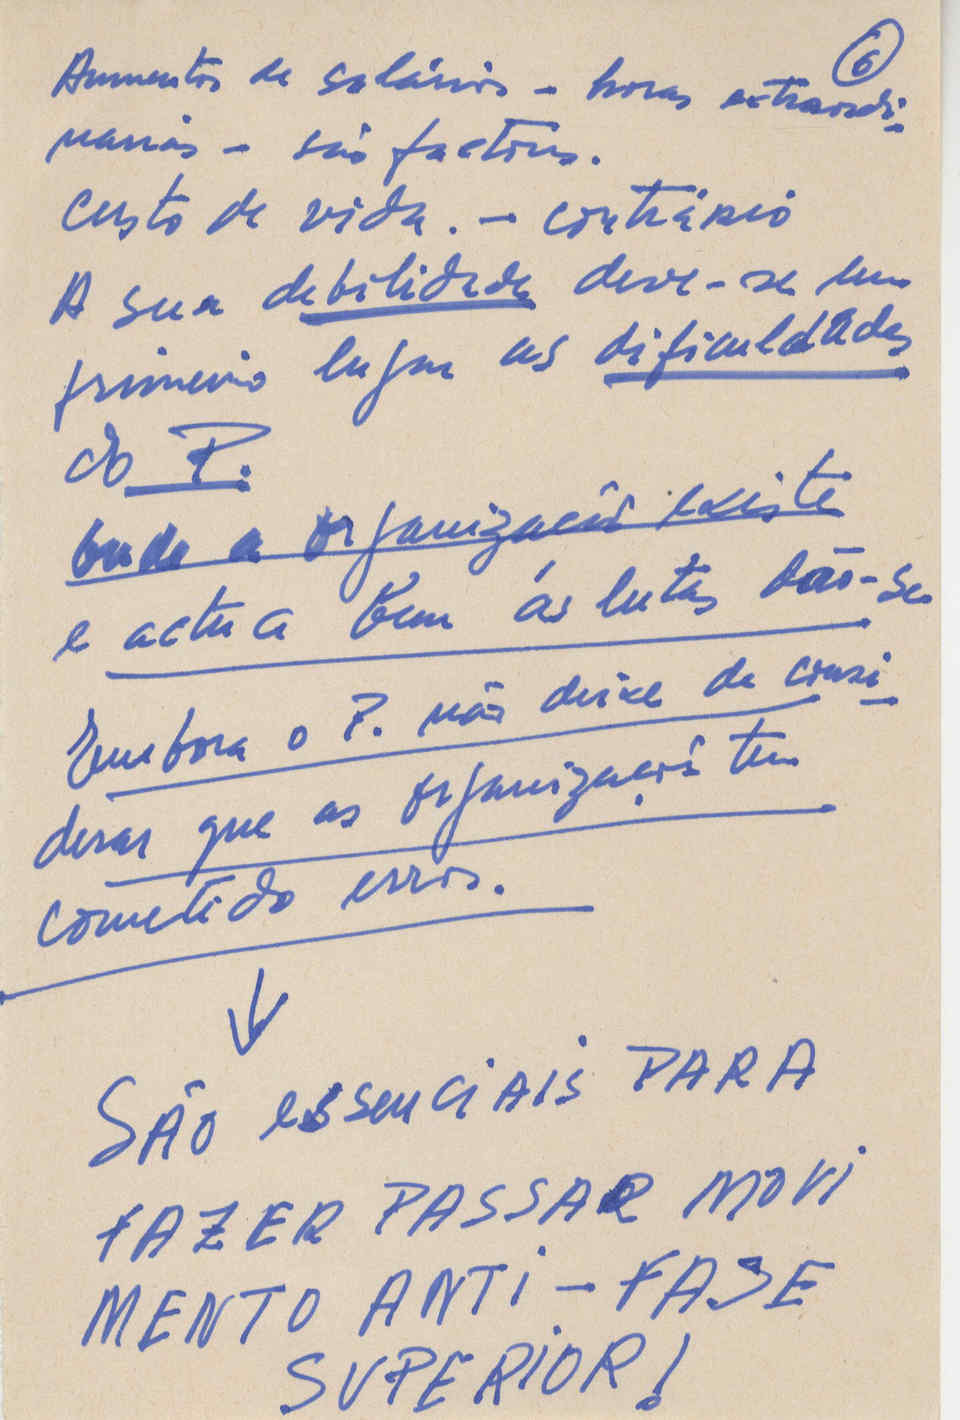 6
Aumentos de salários - horas extraordi-
narias - são factores.
Custo de vida. - contrário
A sua debilidade deve-se em
primeiro lugar as dificuldades
do P.
Onde a organização existe
e actua bem ás lutas dão-se
Embora o P. não deixe de consi-
derar que as organizaçõs tem
cometido erros.
SÃO essenciais PARA
FAZER PASSAR MOVI
MENTO ANTI - FASE
SUPERIOR!